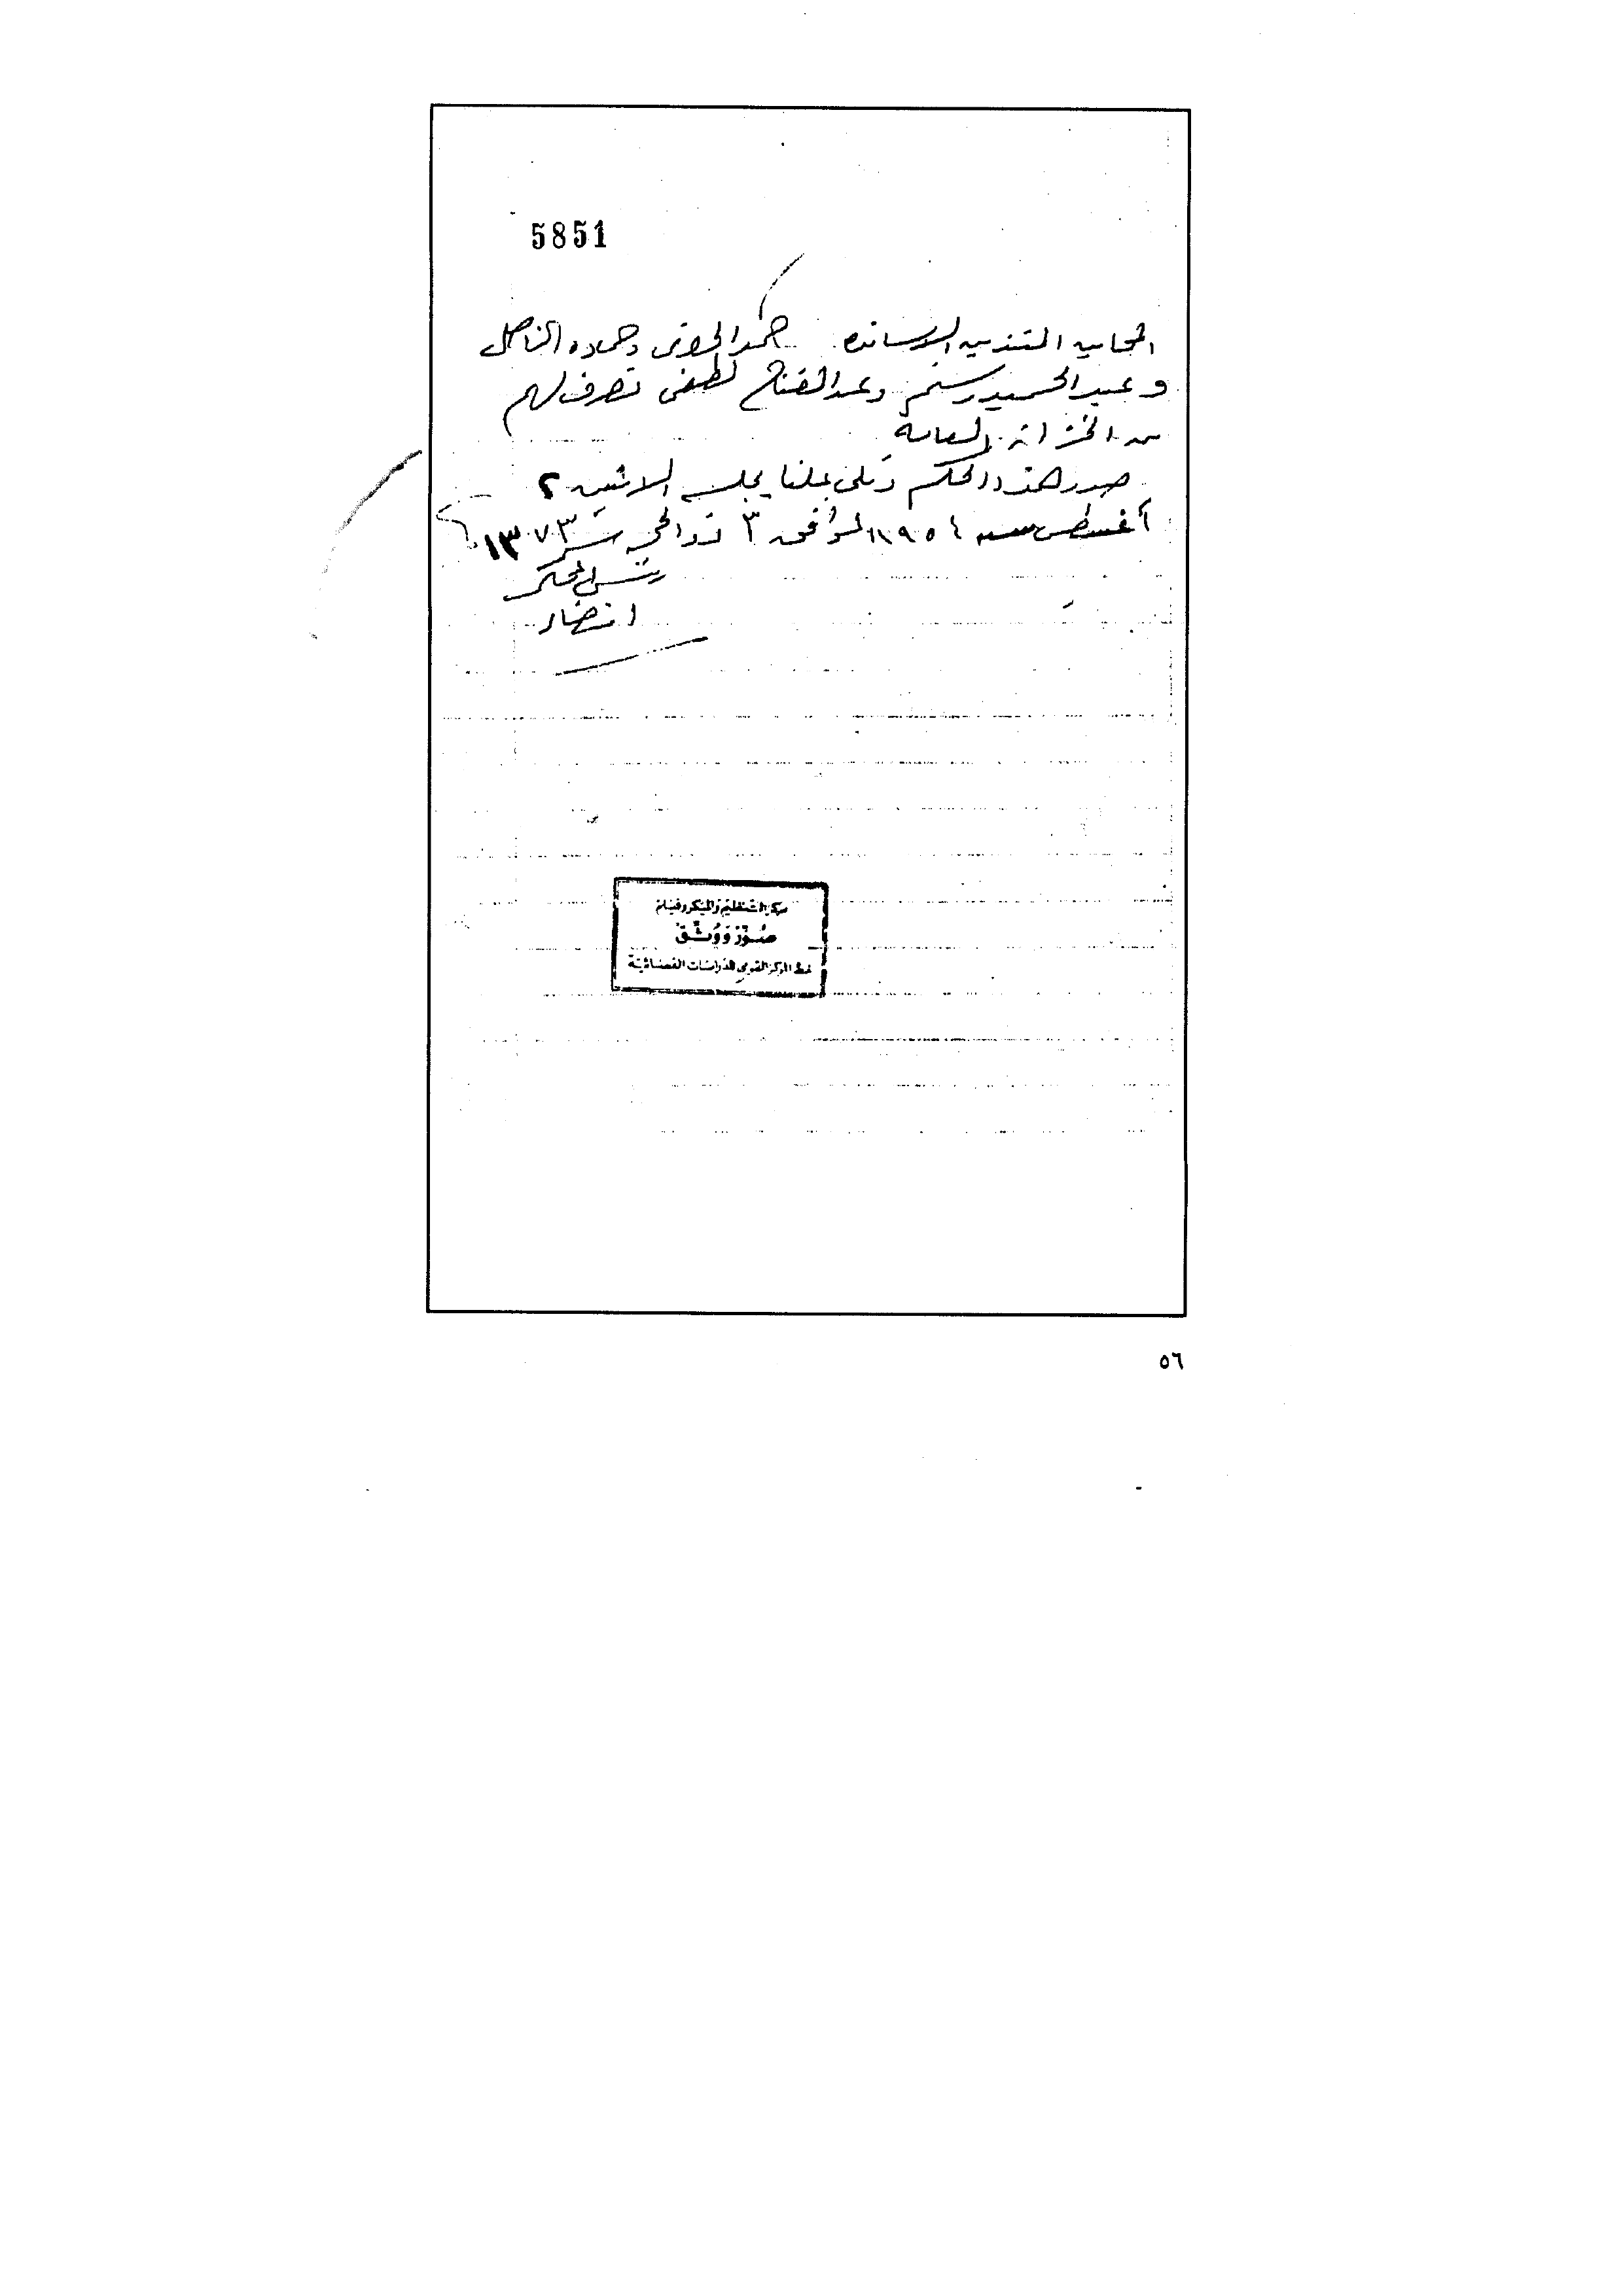 5851
المحامين المنتدبين الاساتذه محمد الجوفى وحماده الناحل
وعبد الحميد رستم وعبد الفتاح لطفى تصرف لهم
من الخزانه العامة
صدر هذا الحكم وتلى علنا بجلسة الاثنين ٢
أغسطس سنه ١٩٥٤ الموافق ٣ ذو الحجه سنة ١٣٧٣
رئيس المحكمة
امضاء
مركز التنظيم والميكروفيلم
صُوِّرَ وَوُثِّقَ
المركز القومى للدراسات القضائية
٥٦